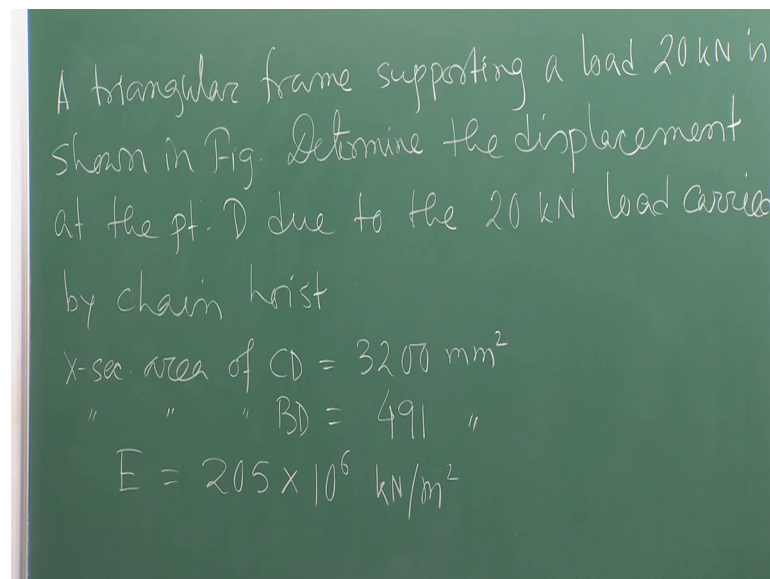 A triangular frame supporting a load 20 kN is
shown in Fig. Determine the displacement
at the pt. D due to the 20 kN load carried
by chain hoist
X-sec. area of CD = 3200 mm²
" " " BD = 491 "
E = 205 × 10⁶ kN/m²